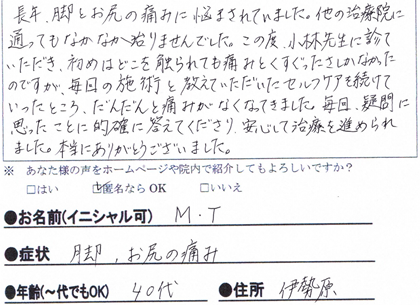 長年、脚とお尻の痛みに悩まされていました。他の治療院に
通ってもなかなか治りませんでした。この度、小林先生に診て
いただき、初めはどこを触られても痛みとくすぐったさしかなかった
のですが、毎回の施術と教えていただいたセルフケアを続けて
いったところ、だんだんと痛みがなくなってきました。毎回、疑問に
思ったことに的確に答えてくださり、安心して治療を進められ
ました。本当にありがとうございました。
※ あなた様の声をホームページや院内で紹介してもよろしいですか?
□はい □匿名ならOK □いいえ
●お名前(イニシャル可) M・T
●症状 脚、お尻の痛み
●年齢(~代でもOK) 40代 ●住所 伊勢原